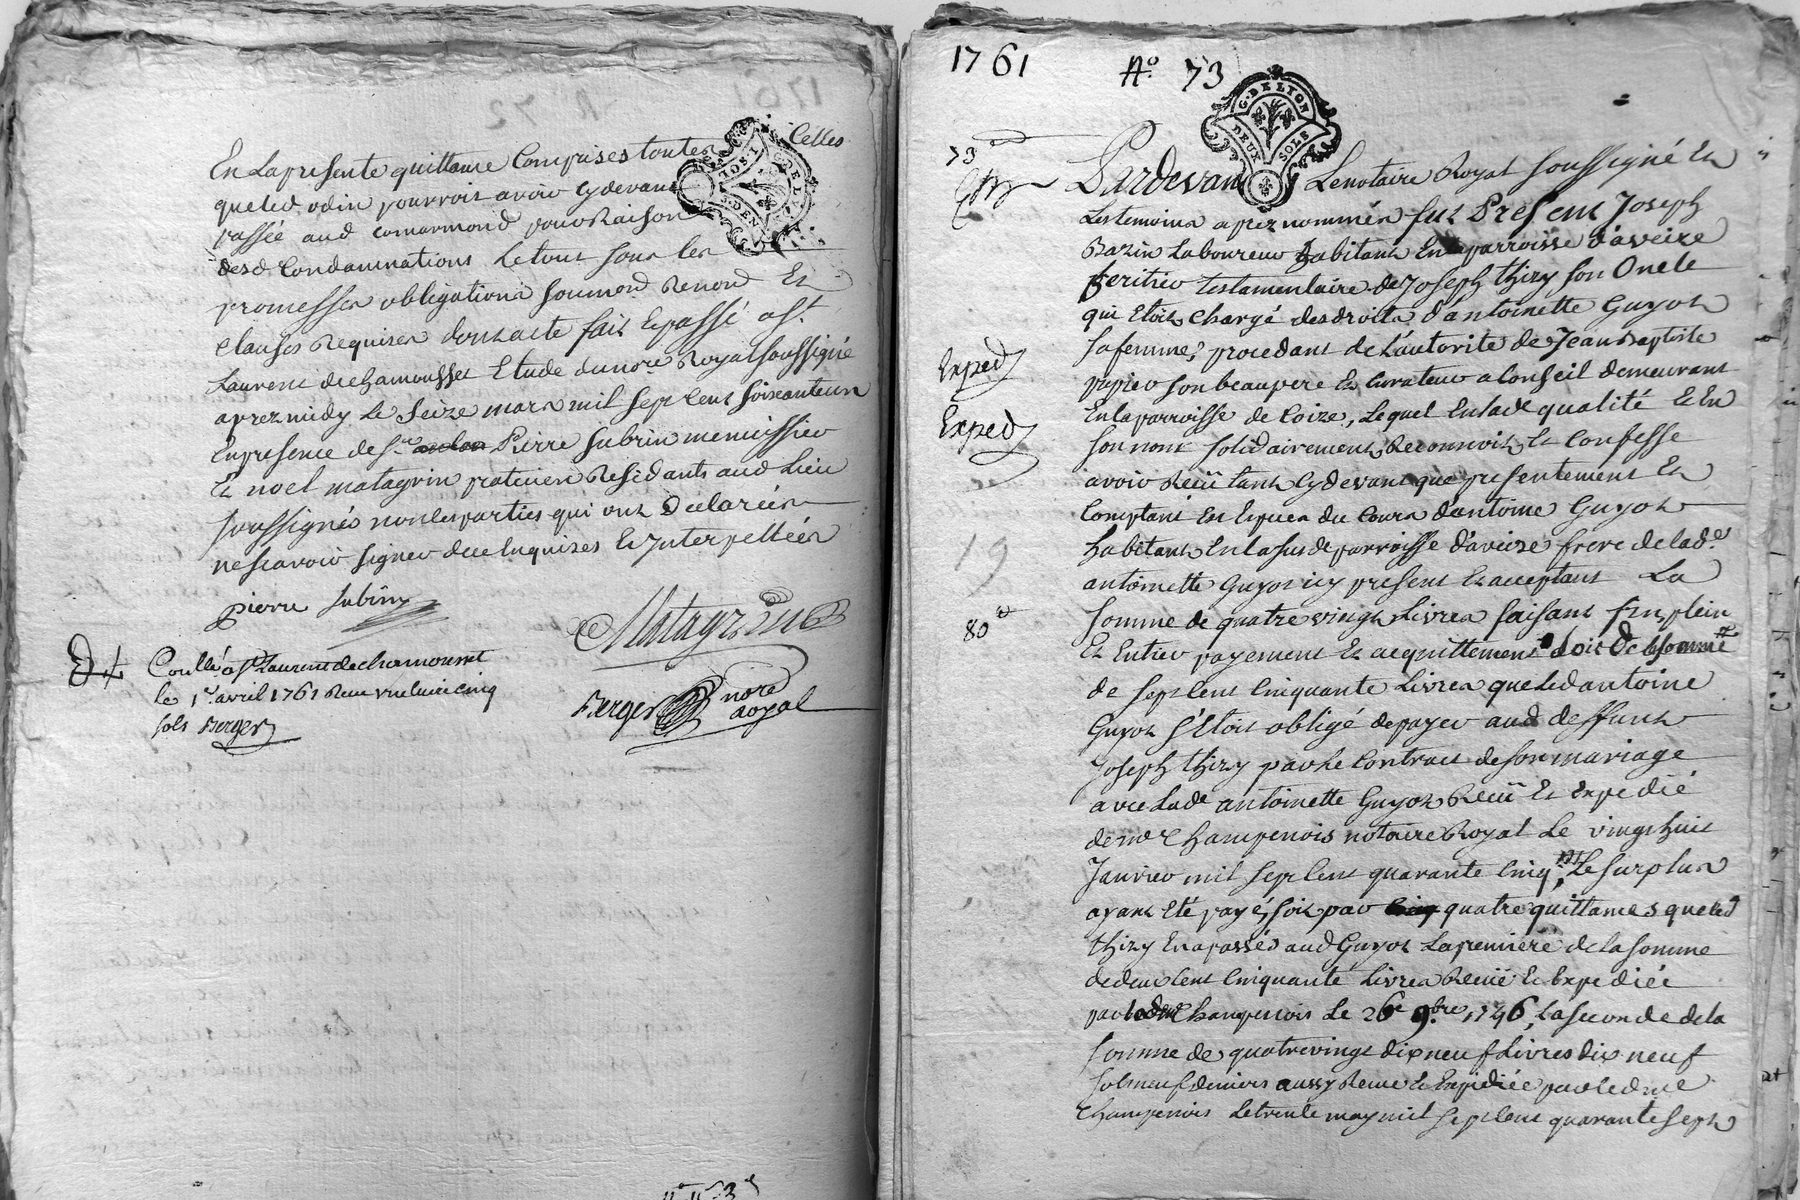 En la presente quittance Comprises toutes Celles
que led. odin pourroit avoir cydevant
passée aud comarmond pour Raison
desd. Condamnations Le tout sous les
promesses obligations soumon. Renon. Et
Clauses Requises dont acte fait Et passé a St.
Laurent de chamousset Etude du nore. Royal soussigné
aprez midy Le Seize mars mil sept Cent soixante un
En presence de sr. Pierre subrin menuissier
Et noel matagrin praticien Residants aud Lieu
soussignés non les parties qui ont Déclarées
ne scavoir signer de ce Enquises Et Interpellées
pierre subrin
Matagrin
Conllé a st Laurent de chamousset
le 1er avril 1761 Reçu
sols Berger
Berger nore
Royal
1761
No. 73
G. DE LYON
DEUX SOLS
73
Pardevant Le notaire Royal soussigné Et
Les temoins aprez nommés fut Present Joseph
Bazin Laboureur habitant En la parroisse d'aveize
heritier testamentaire de Joseph thizy son Oncle
qui Etoit chargé des droits d'antoinette Guyot
sa femme, procedant de L'autorité de Jean Baptiste
papier son beaupere Et Curateur a Conseil demeurant
En la parroisse de Coize, Lequel En lad. qualité Et En
Exped
Exped
son nom solidairement Reconnoit Et Confesse
avoir Reçû tant Cydevant que presentement Et
Comptant En Especes du Cours d'antoine Guyot
habitant En la susde parroisse d'aveize frere de lade.
antoinette Guyot icy present Et acceptant La
19
80 tt
somme de quatre vingt Livres faisant fin, plein
Et Entier payement Et acquittement de la somme
de sept Cent Cinquante Livres que Led antoine
Guyot s'Etoit obligé de payer aud deffunt
Joseph thizy par Le Contract de son mariage
avec Lade antoinette Guyot Reçû Et Expedié
de me Champenois notaire Royal Le vingt huit
Janvier mil sept Cent quarante Cinq, Le surplus
ayant Eté payé, soit par quatre quittances que led
thizy En a passés aud Guyot La premiere de la somme
de deux Cent Cinquante Livres Reçue Et Expediée
par led me Champenois Le 26e 9bre. 1746, La seconde de la
somme de quatrevingt dix neuf Livres dix neuf
sols neuf deniers aussy Reçue Et Expediée par led me
Champenois Le trente may mil sept Cent quarante sept